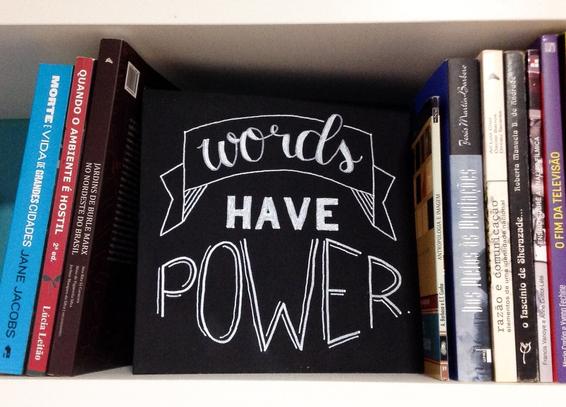 MORTE E VIDA DE GRANDES CIDADES JANE JACOBS
QUANDO O AMBIENTE É HOSTIL 2ª ed. Lúcia Leitão
JARDINS DE BURLE MARX
NO NORDESTE DO BRASIL
words
HAVE
POWER.
ANTROPOLOGIA E IMAGEM
Jesús Martín-Barbero
Dos Meios às Mediações
razão e comunicação
elementos de uma
o fascínio de Sherazade...
Roberta Manuela B. de Andrade
Francis Vanoye e Anne Goliot-Lété
O FIM DA TELEVISÃO